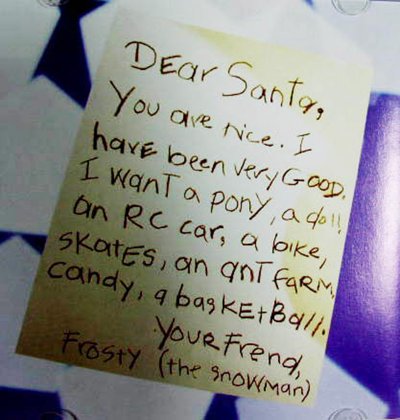 DEar Santa,
You are nice. I
havE been very GOOD.
I want a pony, a doll,
an RC car, a bike,
skatEs, an ant farm,
candy, a baskEtBall.
Your Frend,
Frosty (the snowman)